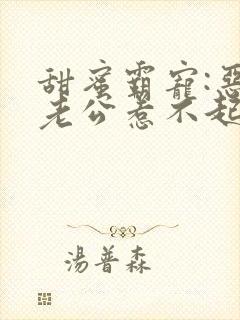 甜蜜霸寵:惡
老公惹不起
湯普森